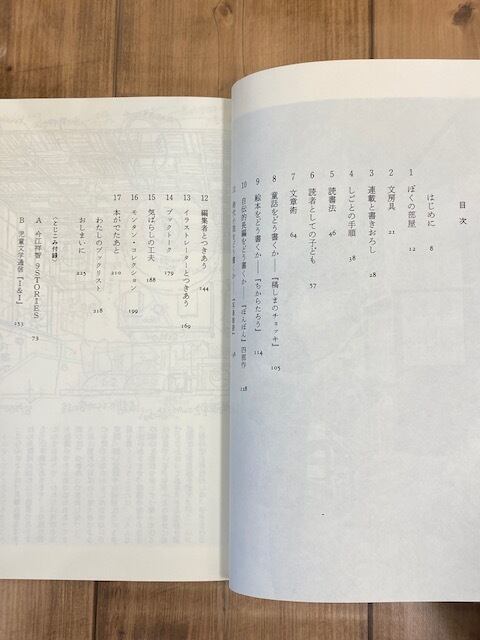 目次
はじめに 8
1 ぼくの部屋 12
2 文房具 21
3 連載と書きおろし 28
4 しごとの手順 38
5 読書法 46
6 読者としての子ども 57
7 文章術 64
8 童話をどう書くか——『稿しまのチョッキ』 105
9 絵本をどう書くか——『ちからたろう』 114
10 自伝的長編をどう書くか——『ぼんぼん』四部作 128
12 編集者とつきあう 244
13 イラストレーターとつきあう 169
14 ブックトーク 179
15 気ばらしの工夫 188
16 モンタン・コレクション 199
17 本がでたあと 210
わたしのブックリスト 218
おしまいに 225
〈とじこみ付録〉
A 今江祥智 9 STORIES 73
B 児童文学通信『I&I』 253